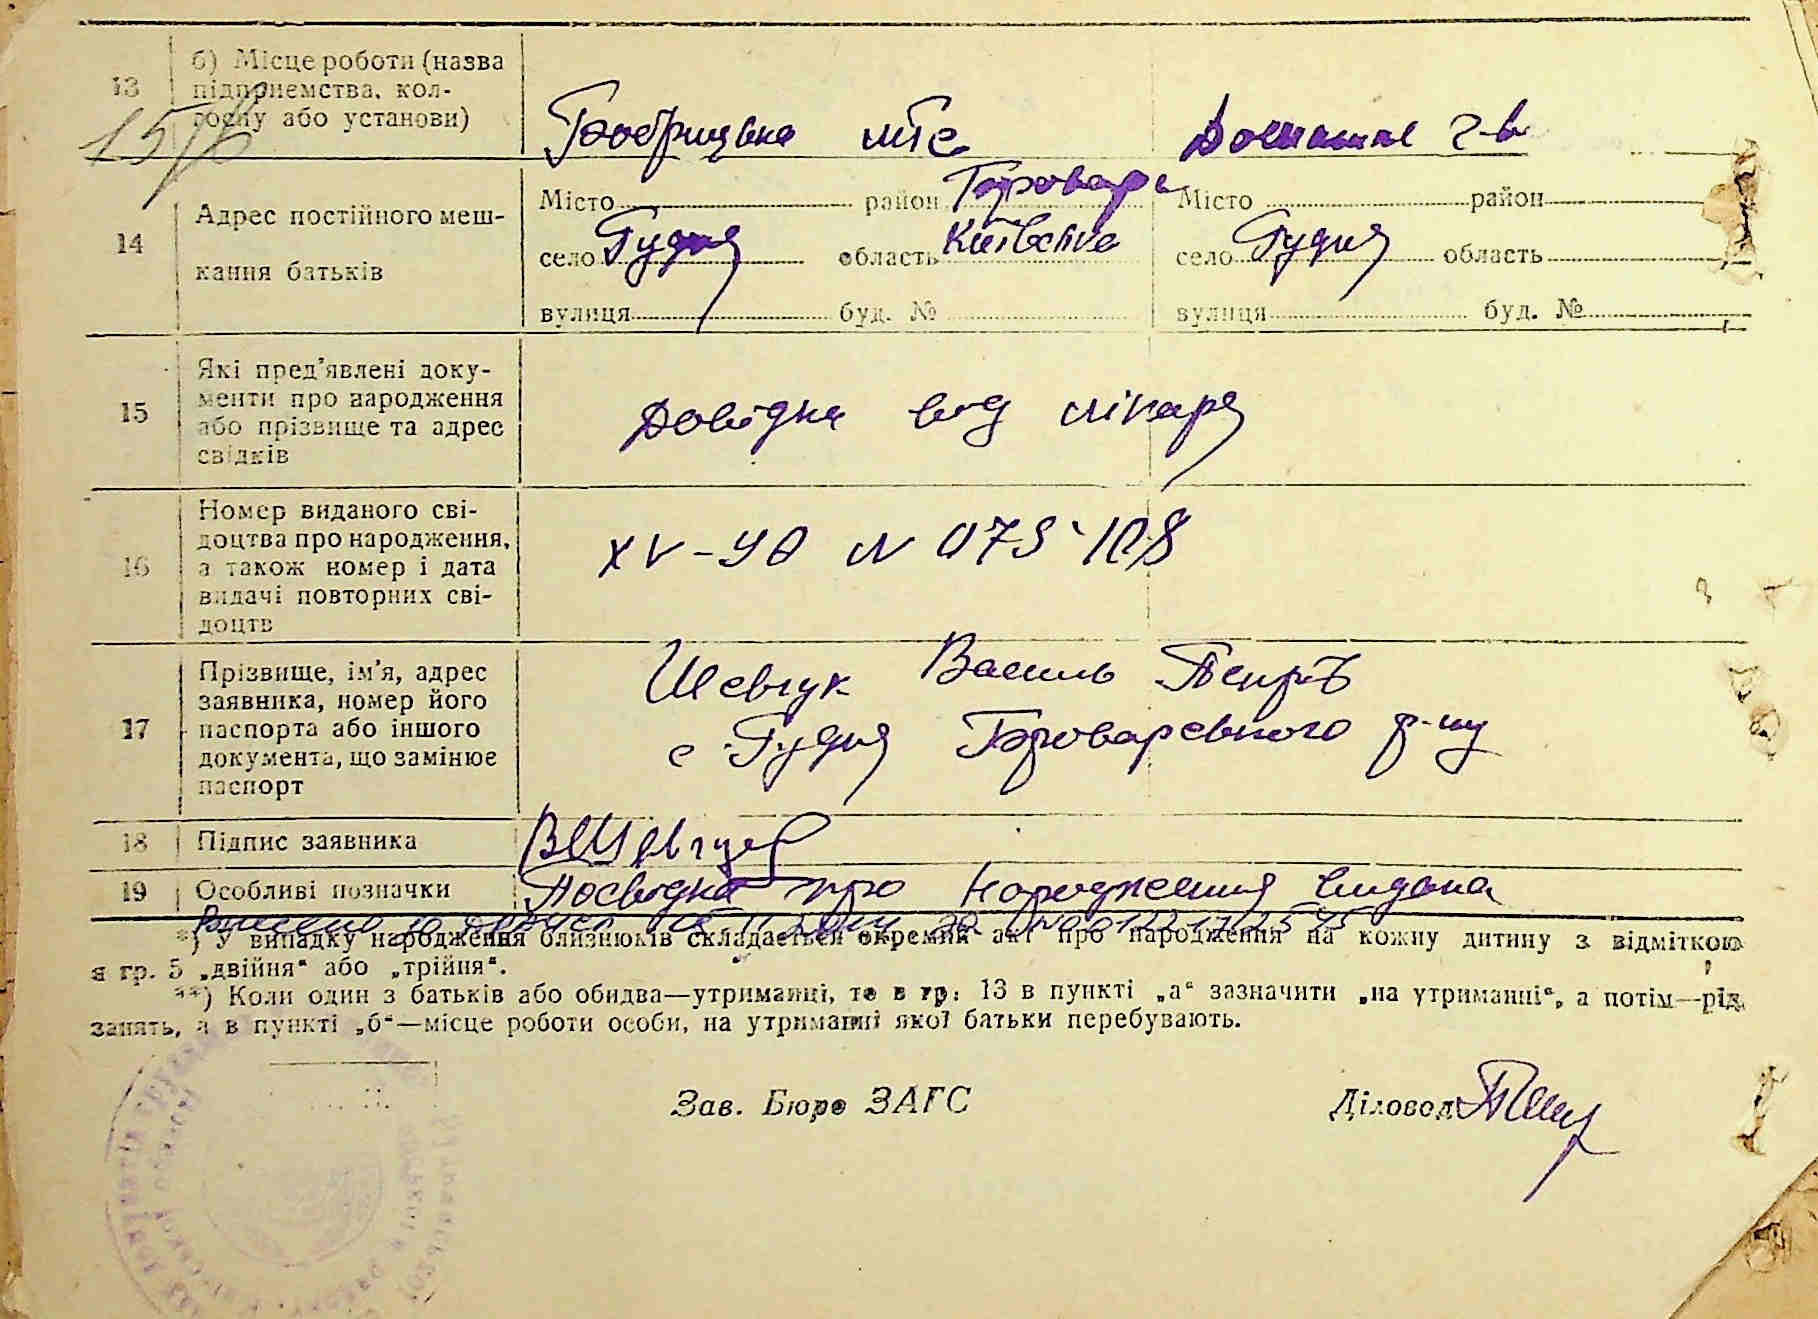 13
б) Місце роботи (назва
підприємства, кол-
госпу або установи)
Бобрицька мтс
Домашнє г-во
14
Адрес постійного меш-
кання батьків
Місто район Бровари
село Рудня область Київська
вулиця буд. №
Місто район
село Рудня область
вулиця буд. №
15
Які пред'явлені доку-
менти про народження
або прізвище та адрес
свідків
Довідка від лікаря
16
Номер виданого сві-
доцтва про народження,
а також номер і дата
видачі повторних сві-
доцтв
XV-УО N 073108
17
Прізвище, ім'я, адрес
заявника, номер його
паспорта або іншого
документа, що замінює
паспорт
Шевчук Василь Петр
с Рудня Броварського р-ну
18
Підпис заявника
19
Особливі позначки
Посвідка про народження видана
Внесено до
*) У випадку народження близнюків складається окремий акт про народження на кожну дитину з відміткою
в гр. 5 „двійня" або „трійня".
**) Коли один з батьків або обидва—утриманці, то в гр. 13 в пункті „а" зазначити „на утриманні", а потім—рід
занять, а в пункті „б"—місце роботи особи, на утриманні якої батьки перебувають.
Зав. Бюро ЗАГС
Діловод